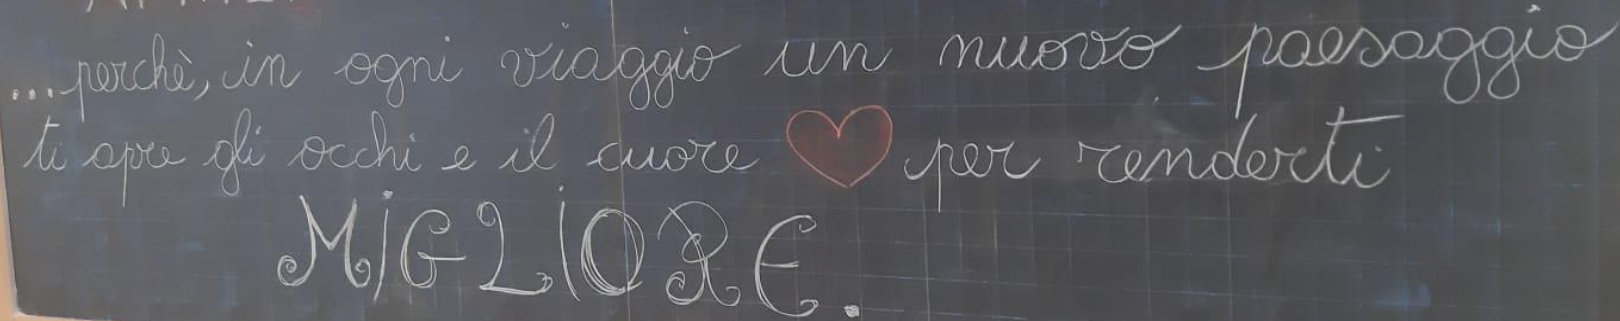 ...perchè, in ogni viaggio un nuovo paesaggio
ti apre gli occhi e il cuore per renderti
MiGLiORE.